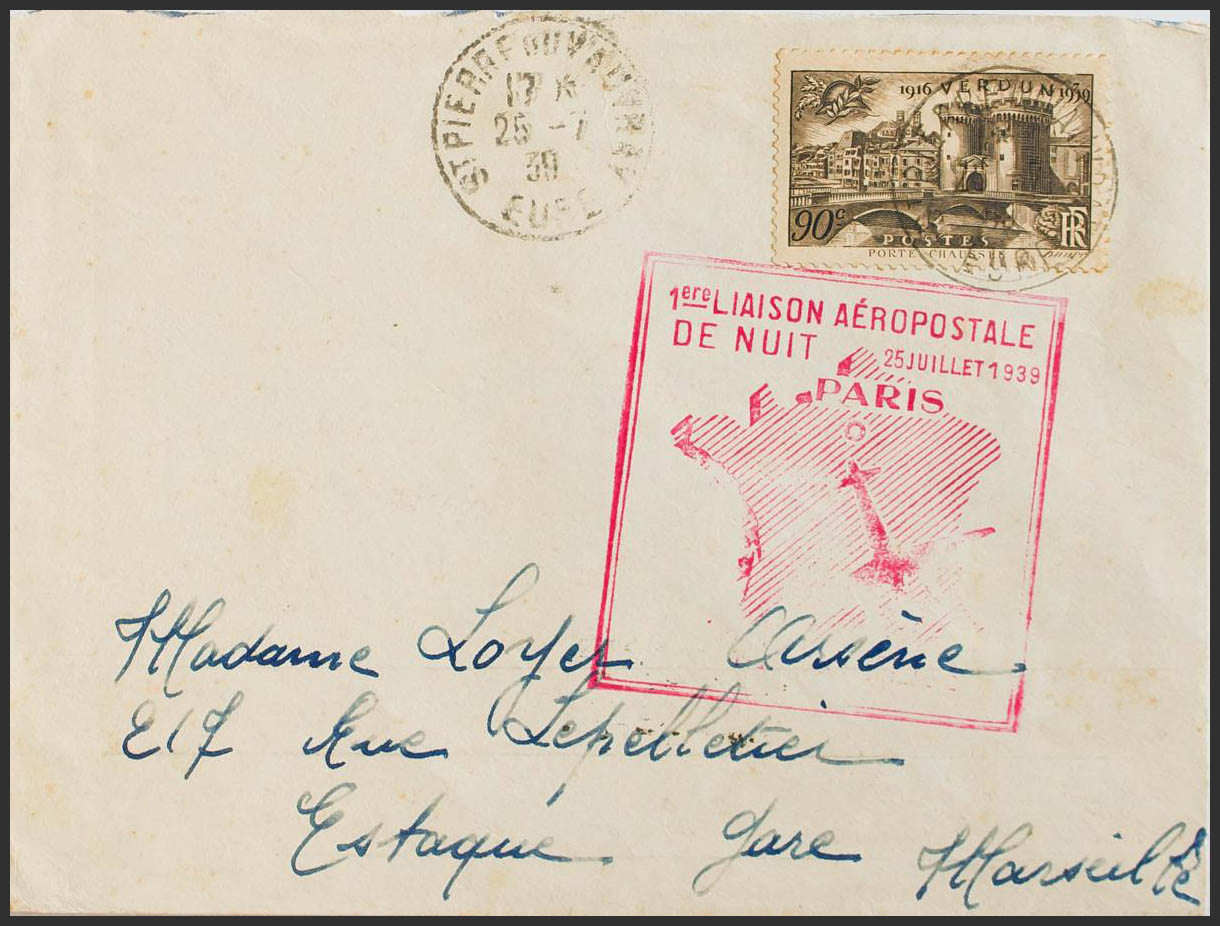 ST PIERRE DU VAUVRAY
17 *
25 -7
39
EURE
1916 VERDUN 1939
90c
POSTES
RF
PORTE CHAUSSÉE
1ere LIAISON AÉROPOSTALE
DE NUIT
25 JUILLET 1939
PARIS
Madame Loyer Arsène
217 Rue Lepelletier
Estaque Gare Marseille